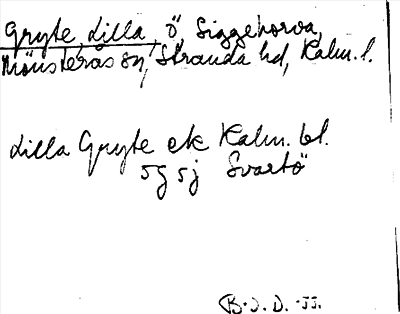 Gryte, Lilla, ö, Siggehorva,
Mönsterås sn, Stranda hd, Kalm. l.
Lilla Gryte ek Kalm. bl.
5g 5j Svartö
B. J. D. -55.